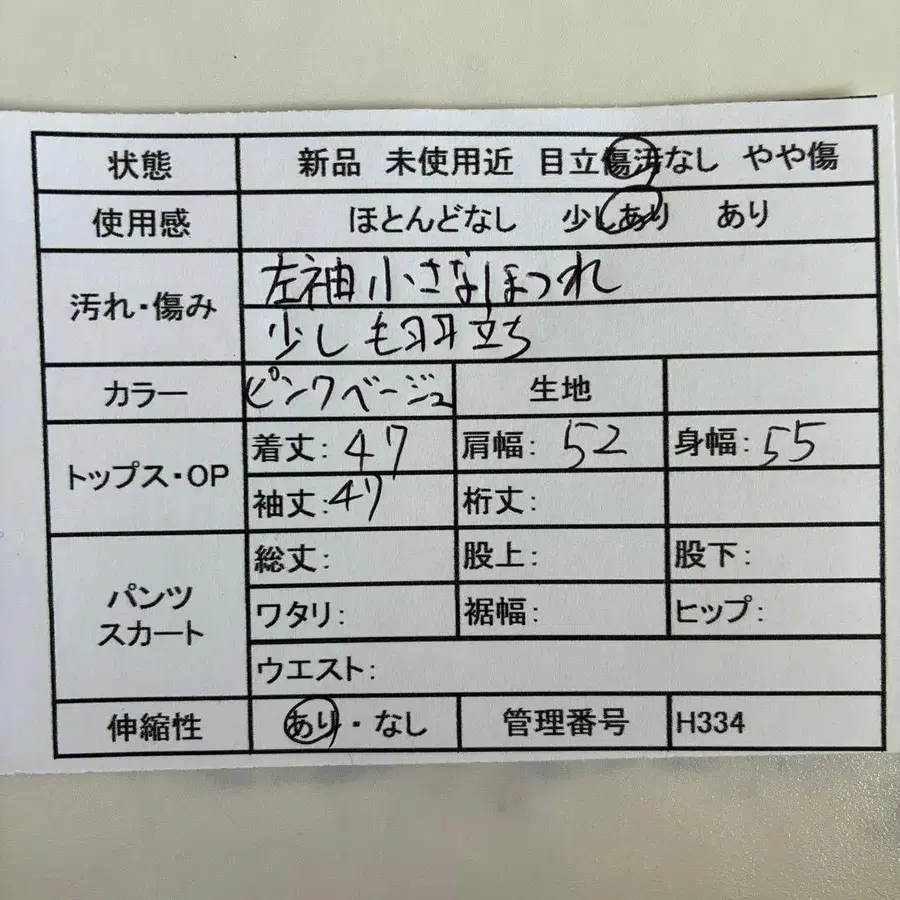 状態 新品 未使用近 目立傷汚なし やや傷
使用感 ほとんどなし 少しあり あり
汚れ・傷み 左袖小さなほつれ
少し毛羽立ち
カラー ピンクベージュ 生地
トップス・OP 着丈: 47 肩幅: 52 身幅: 55
袖丈: 47 裄丈:
パンツ スカート 総丈: 股上: 股下:
ワタリ: 裾幅: ヒップ:
ウエスト:
伸縮性 あり・なし 管理番号 H334